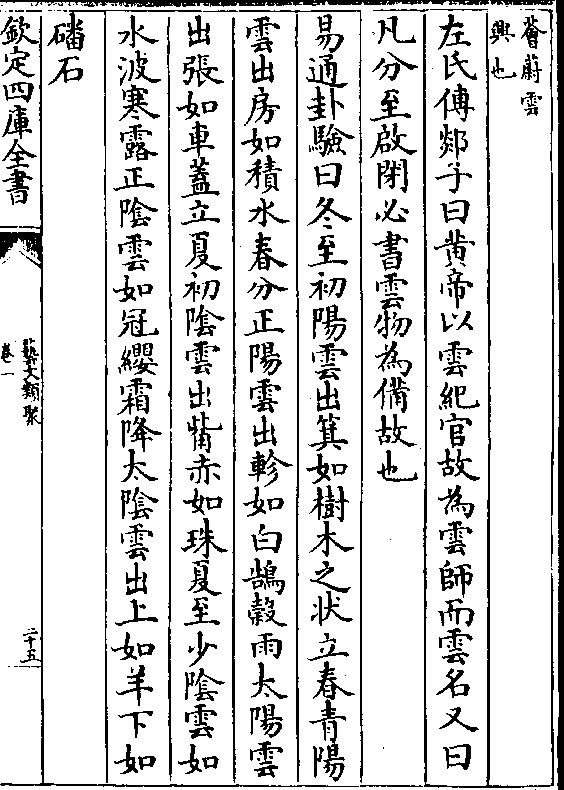 薈蔚雲
興也
左氏傳郯子曰黄帝以雲紀官故為雲師而雲名又曰
凡分至啟閉必書雲物為備故也
易通卦驗曰冬至初陽雲出箕如樹木之狀立春青陽
雲出房如積水春分正陽雲出軫如白鵠穀雨太陽雲
出張如車蓋立夏初陰雲出觜赤如珠夏至少陰雲如
水波寒露正陰雲如冠纓霜降太陰雲出上如羊下如
磻石
欽定四庫全書
藝文類聚
卷一
二十五